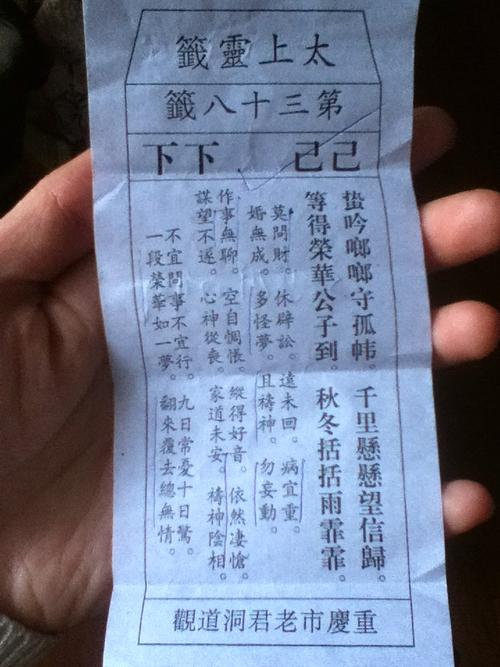 太上靈籤
第三十八籤
己己 下下
蛩吟啷啷守孤帏。千里懸懸望信歸。
等得榮華公子到。秋冬括括雨霏霏。
莫問財。休辟訟。遠未回。病宜重。
婚無成。多怪夢。且禱神。勿妄動。
作事無聊。空自惆悵。縱得好音。依然凄愴。
謀望不遂。心神從喪。家道未安。禱神陰相。
不宜問事不宜行。九日常憂十日驚。
一段榮華如一夢。翻來覆去總無情。
重慶市老君洞道觀